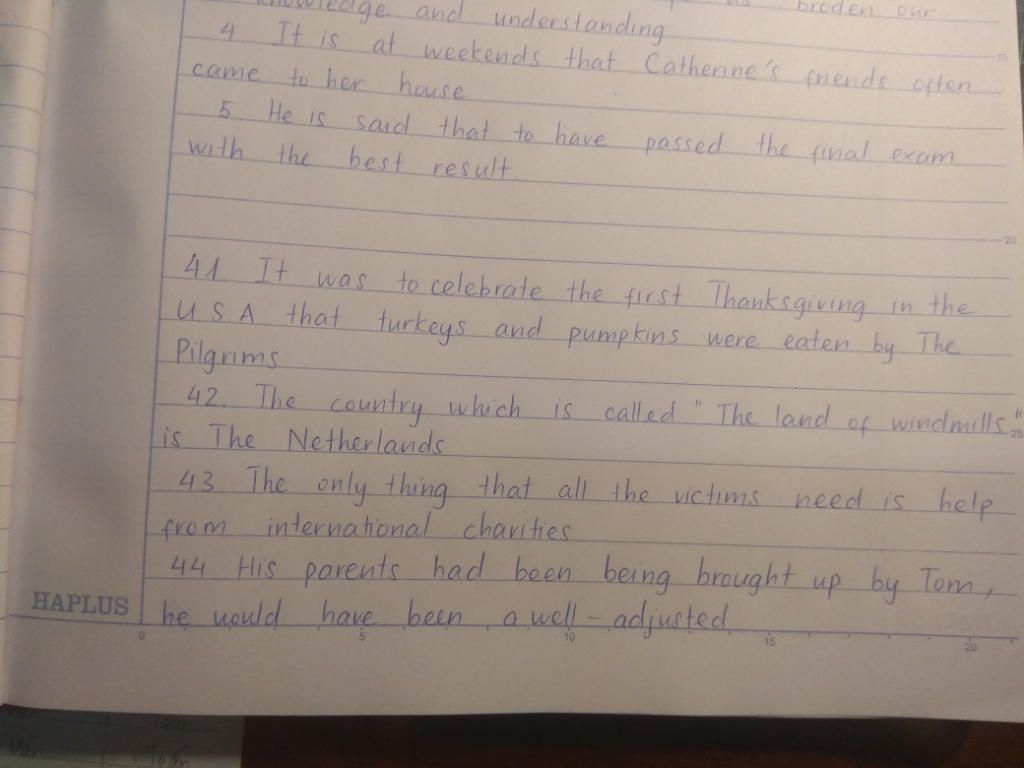 knowledge and understanding broden our
4 It is at weekends that Catherine's friends often
came to her house
5 He is said that to have passed the final exam
with the best result
20
41. It was to celebrate the first Thanksgiving in the
U S A that turkeys and pumpkins were eaten by The
Pilgrims
42. The country which is called "The land of windmills"
25
is The Netherlands
43 The only thing that all the victims need is help
from international charities
44 His parents had been being brought up by Tom,
he would have been a well-adjusted
HAPLUS
0 5 10 15 20